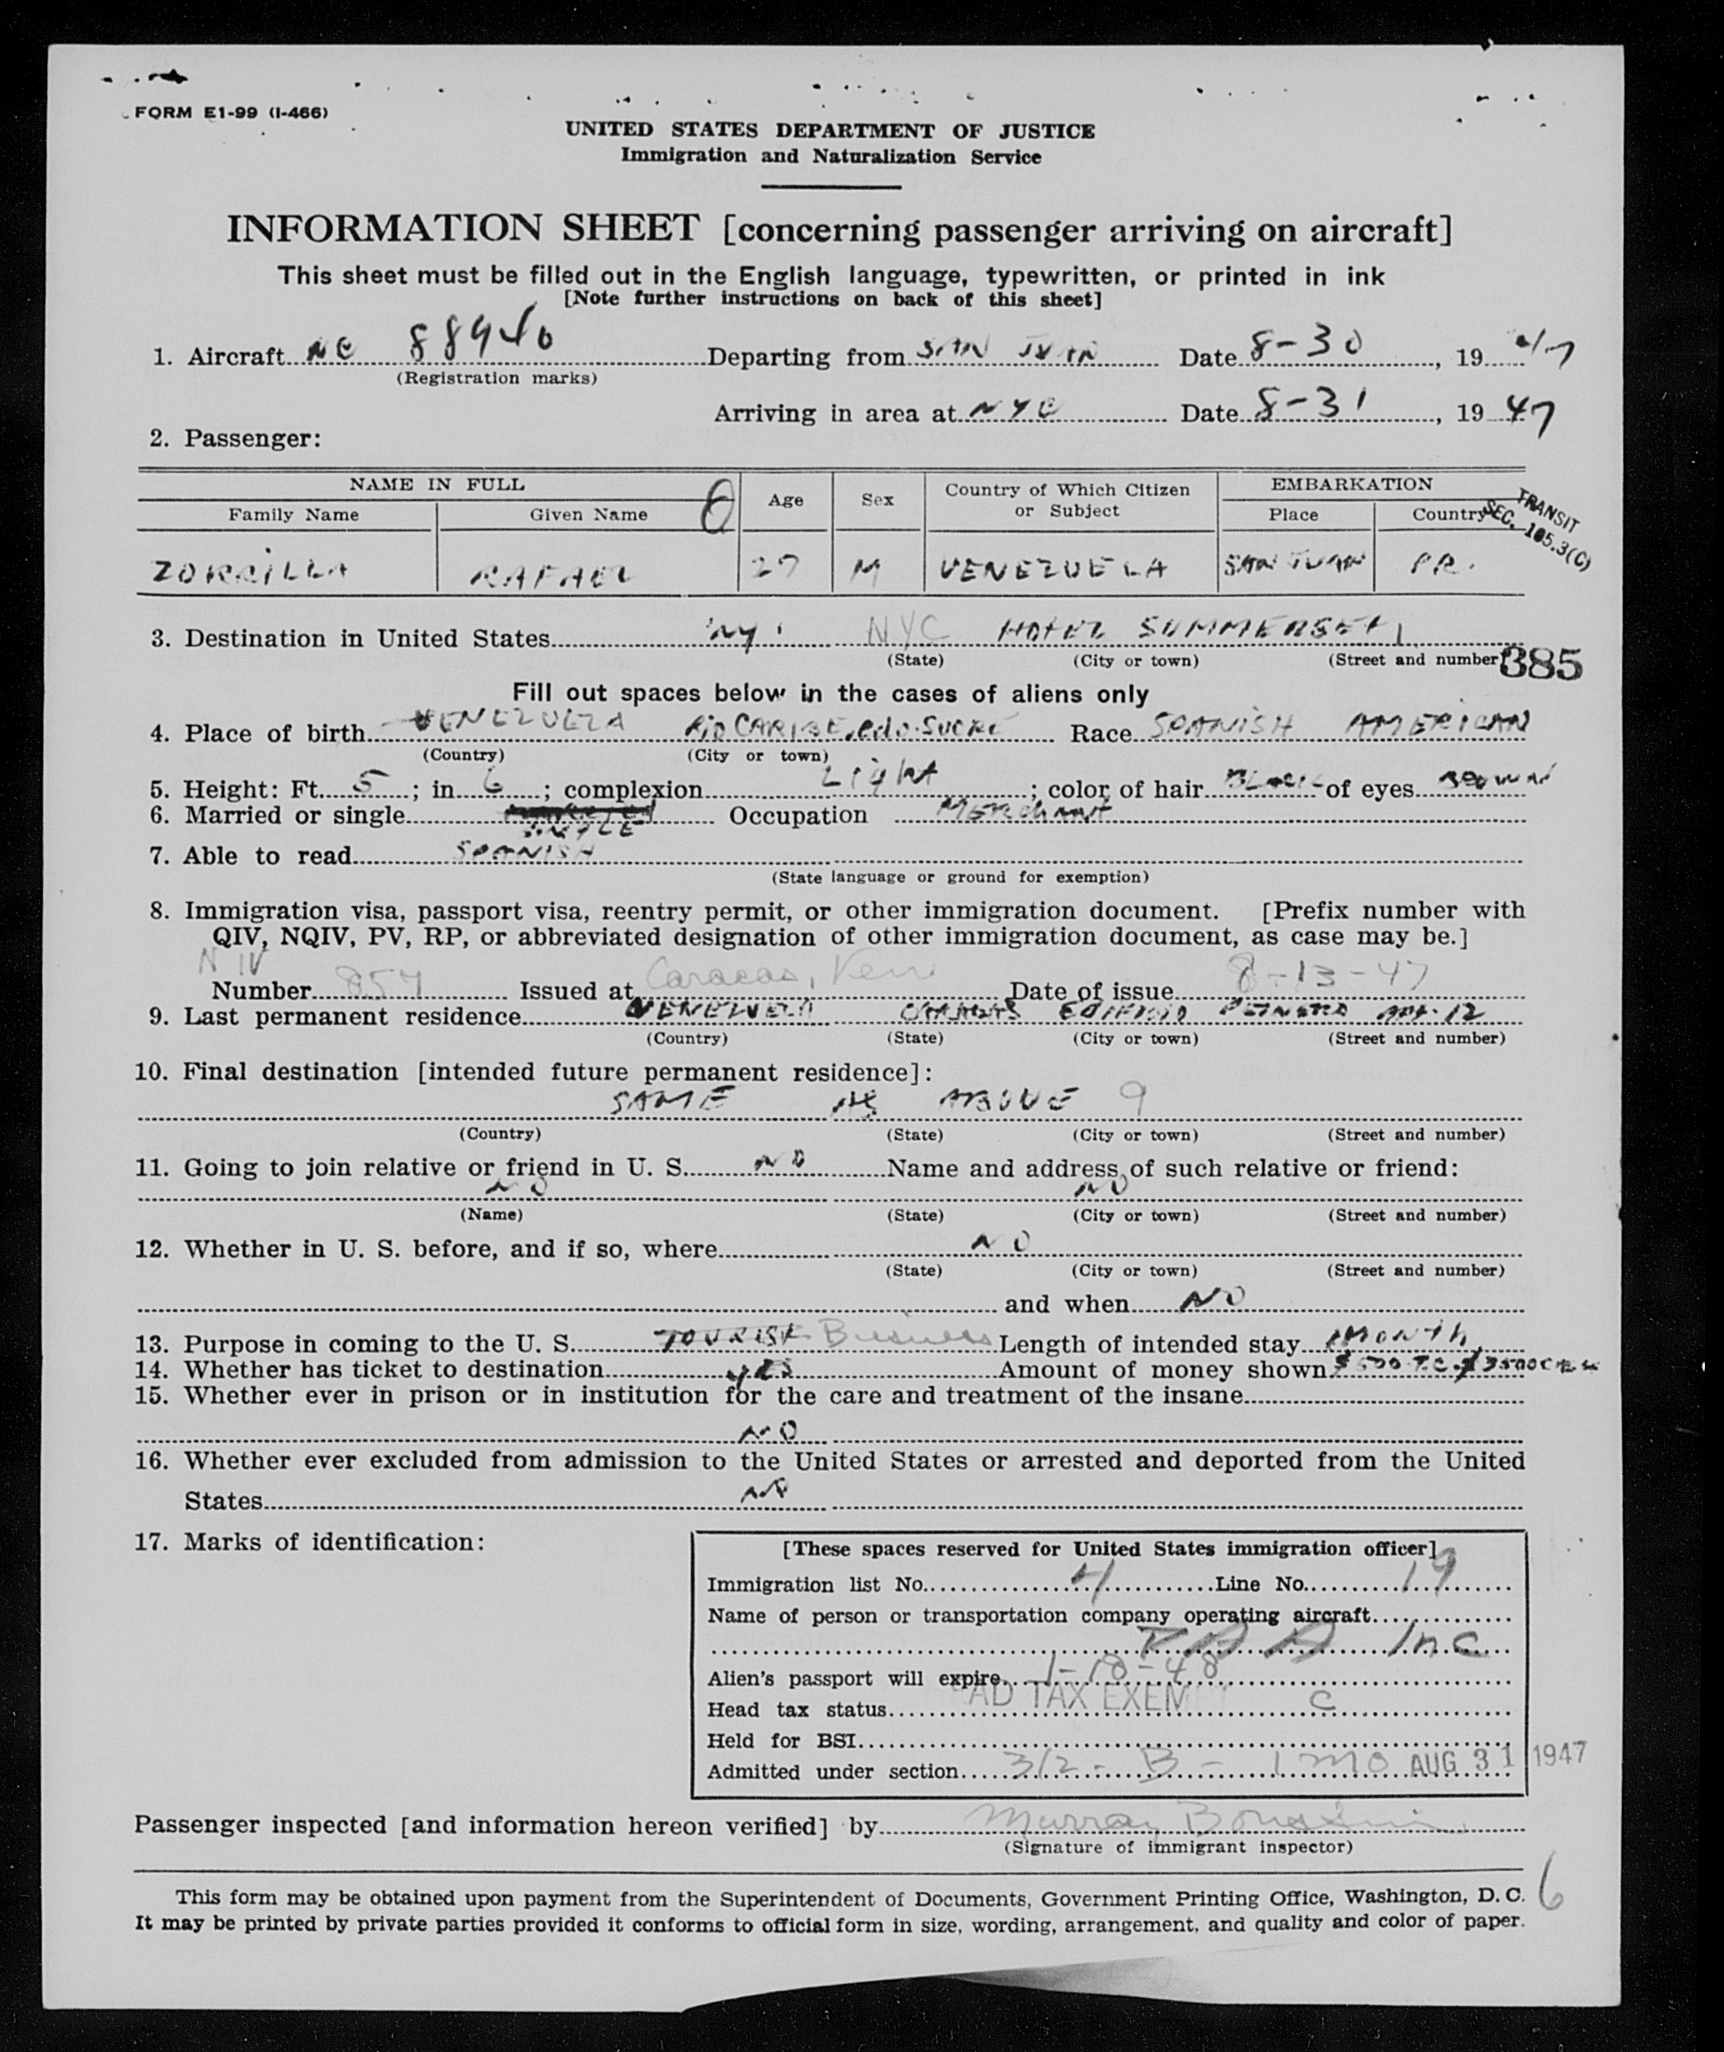 FORM E1-99 (I-466)
UNITED STATES DEPARTMENT OF JUSTICE
Immigration and Naturalization Service
INFORMATION SHEET [concerning passenger arriving on aircraft]
This sheet must be filled out in the English language, typewritten, or printed in ink
[Note further instructions on back of this sheet]
1. Aircraft NC 88940 Departing from SAN JUAN Date 8-30, 1947
(Registration marks)
Arriving in area at NYC Date 8-31, 1947
2. Passenger:
NAME IN FULL 6 Age Sex Country of Which Citizen or Subject EMBARKATION
Family Name Given Name Place Country TRANSIT SEC. 105.3(C)
ZORRILLA RAFAEL 27 M VENEZUELA SAN JUAN PR.
3. Destination in United States NY. NYC HOTEL SUMMERSET
(State) (City or town) (Street and number) 385
Fill out spaces below in the cases of aliens only
4. Place of birth VENEZUELA RIO CARIBE, edo. SUCRE Race SPANISH AMERICAN
(Country) (City or town)
5. Height: Ft. 5; in 6; complexion Light; color of hair BLACK of eyes BROWN
6. Married or single SINGLE Occupation MERCHANT
7. Able to read SPANISH
(State language or ground for exemption)
8. Immigration visa, passport visa, reentry permit, or other immigration document. [Prefix number with
QIV, NQIV, PV, RP, or abbreviated designation of other immigration document, as case may be.]
N IV
Number 857 Issued at Caracas, Ven Date of issue 8-13-47
9. Last permanent residence VENEZUELA CARACAS EDIFICIO APT. 12
(Country) (State) (City or town) (Street and number)
10. Final destination [intended future permanent residence]:
SAME AS ABOVE 9
(Country) (State) (City or town) (Street and number)
11. Going to join relative or friend in U. S. NO Name and address of such relative or friend:
NO NO
(Name) (State) (City or town) (Street and number)
12. Whether in U. S. before, and if so, where NO
(State) (City or town) (Street and number)
and when NO
13. Purpose in coming to the U. S. TOURIST Business Length of intended stay 1 MONTH
14. Whether has ticket to destination yes Amount of money shown $500 T.C.
15. Whether ever in prison or in institution for the care and treatment of the insane
NO
16. Whether ever excluded from admission to the United States or arrested and deported from the United
States NO
17. Marks of identification:
[These spaces reserved for United States immigration officer]
Immigration list No. 4 Line No. 19
Name of person or transportation company operating aircraft
PAA Inc
Alien's passport will expire 1-18-48
Head tax status AD TAX EXEM C
Held for BSI
Admitted under section 3/2 - B - 1 MO AUG 31 1947
Passenger inspected [and information hereon verified] by Murray
(Signature of immigrant inspector)
This form may be obtained upon payment from the Superintendent of Documents, Government Printing Office, Washington, D. C. 6
It may be printed by private parties provided it conforms to official form in size, wording, arrangement, and quality and color of paper.